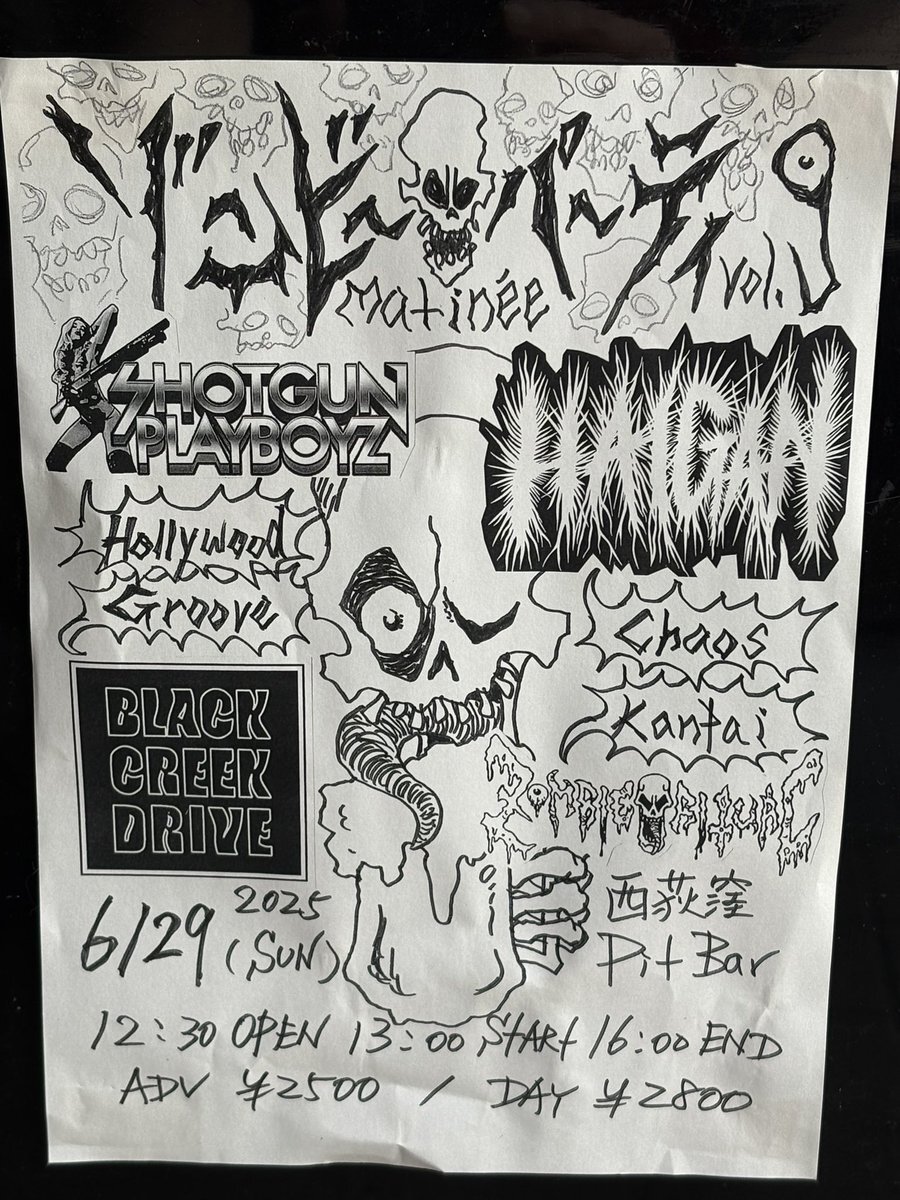 ゾンビ〜パ〜ティ vol.9
matinée
SHOTGUN
PLAYBOYZ
HAIGAN
Hollywood
Groove
Chaos
Kantai
BLACK
CREEK
DRIVE
ZOMBIE RITUAL
6/29 2025 (SUN)
西荻窪
Pit Bar
12:30 OPEN 13:00 START 16:00 END
ADV ¥2500 / DAY ¥2800